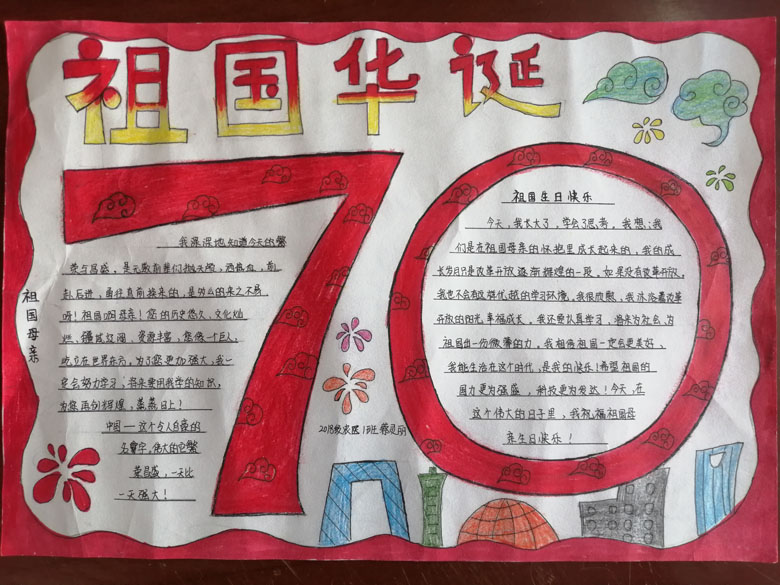 祖国华诞
70
祖国母亲
我深深地知道今天的繁
荣与昌盛，是无数前辈们抛头颅，洒热血，前
赴后进，勇往直前换来的，是多么的来之不易
呀！祖国啊母亲！您的历史悠久，文化灿
烂、疆域辽阔、资源丰富，您像一个巨人，
屹立在世界东方，为了您更加强大，我一
定会努力学习，将来要用我学的知识，
为您再创辉煌，蒸蒸日上！
中国——这个与人自豪的
名字，伟大的它繁
荣昌盛，一天比
一天强大！
祖国生日快乐
今天，我长大了，学会了思考。我想：我
们是在祖国母亲的怀抱里成长起来的，我的成
长岁月是改革开放逐渐辉煌的一段。如果没有改革开放，
我也不会有这样优越的学习环境。我很欣慰，我沐浴着改革
开放的阳光，幸福成长。我还要认真学习，将来为社会、为
祖国出一份微薄的力。我相信祖国一定会更美好，
我能生活在这个时代，是我的快乐！希望祖国的
国力更为强盛，科技更为发达！今天，在
这个伟大的日子里，我祝福祖国母
亲生日快乐！
2018级农医1班